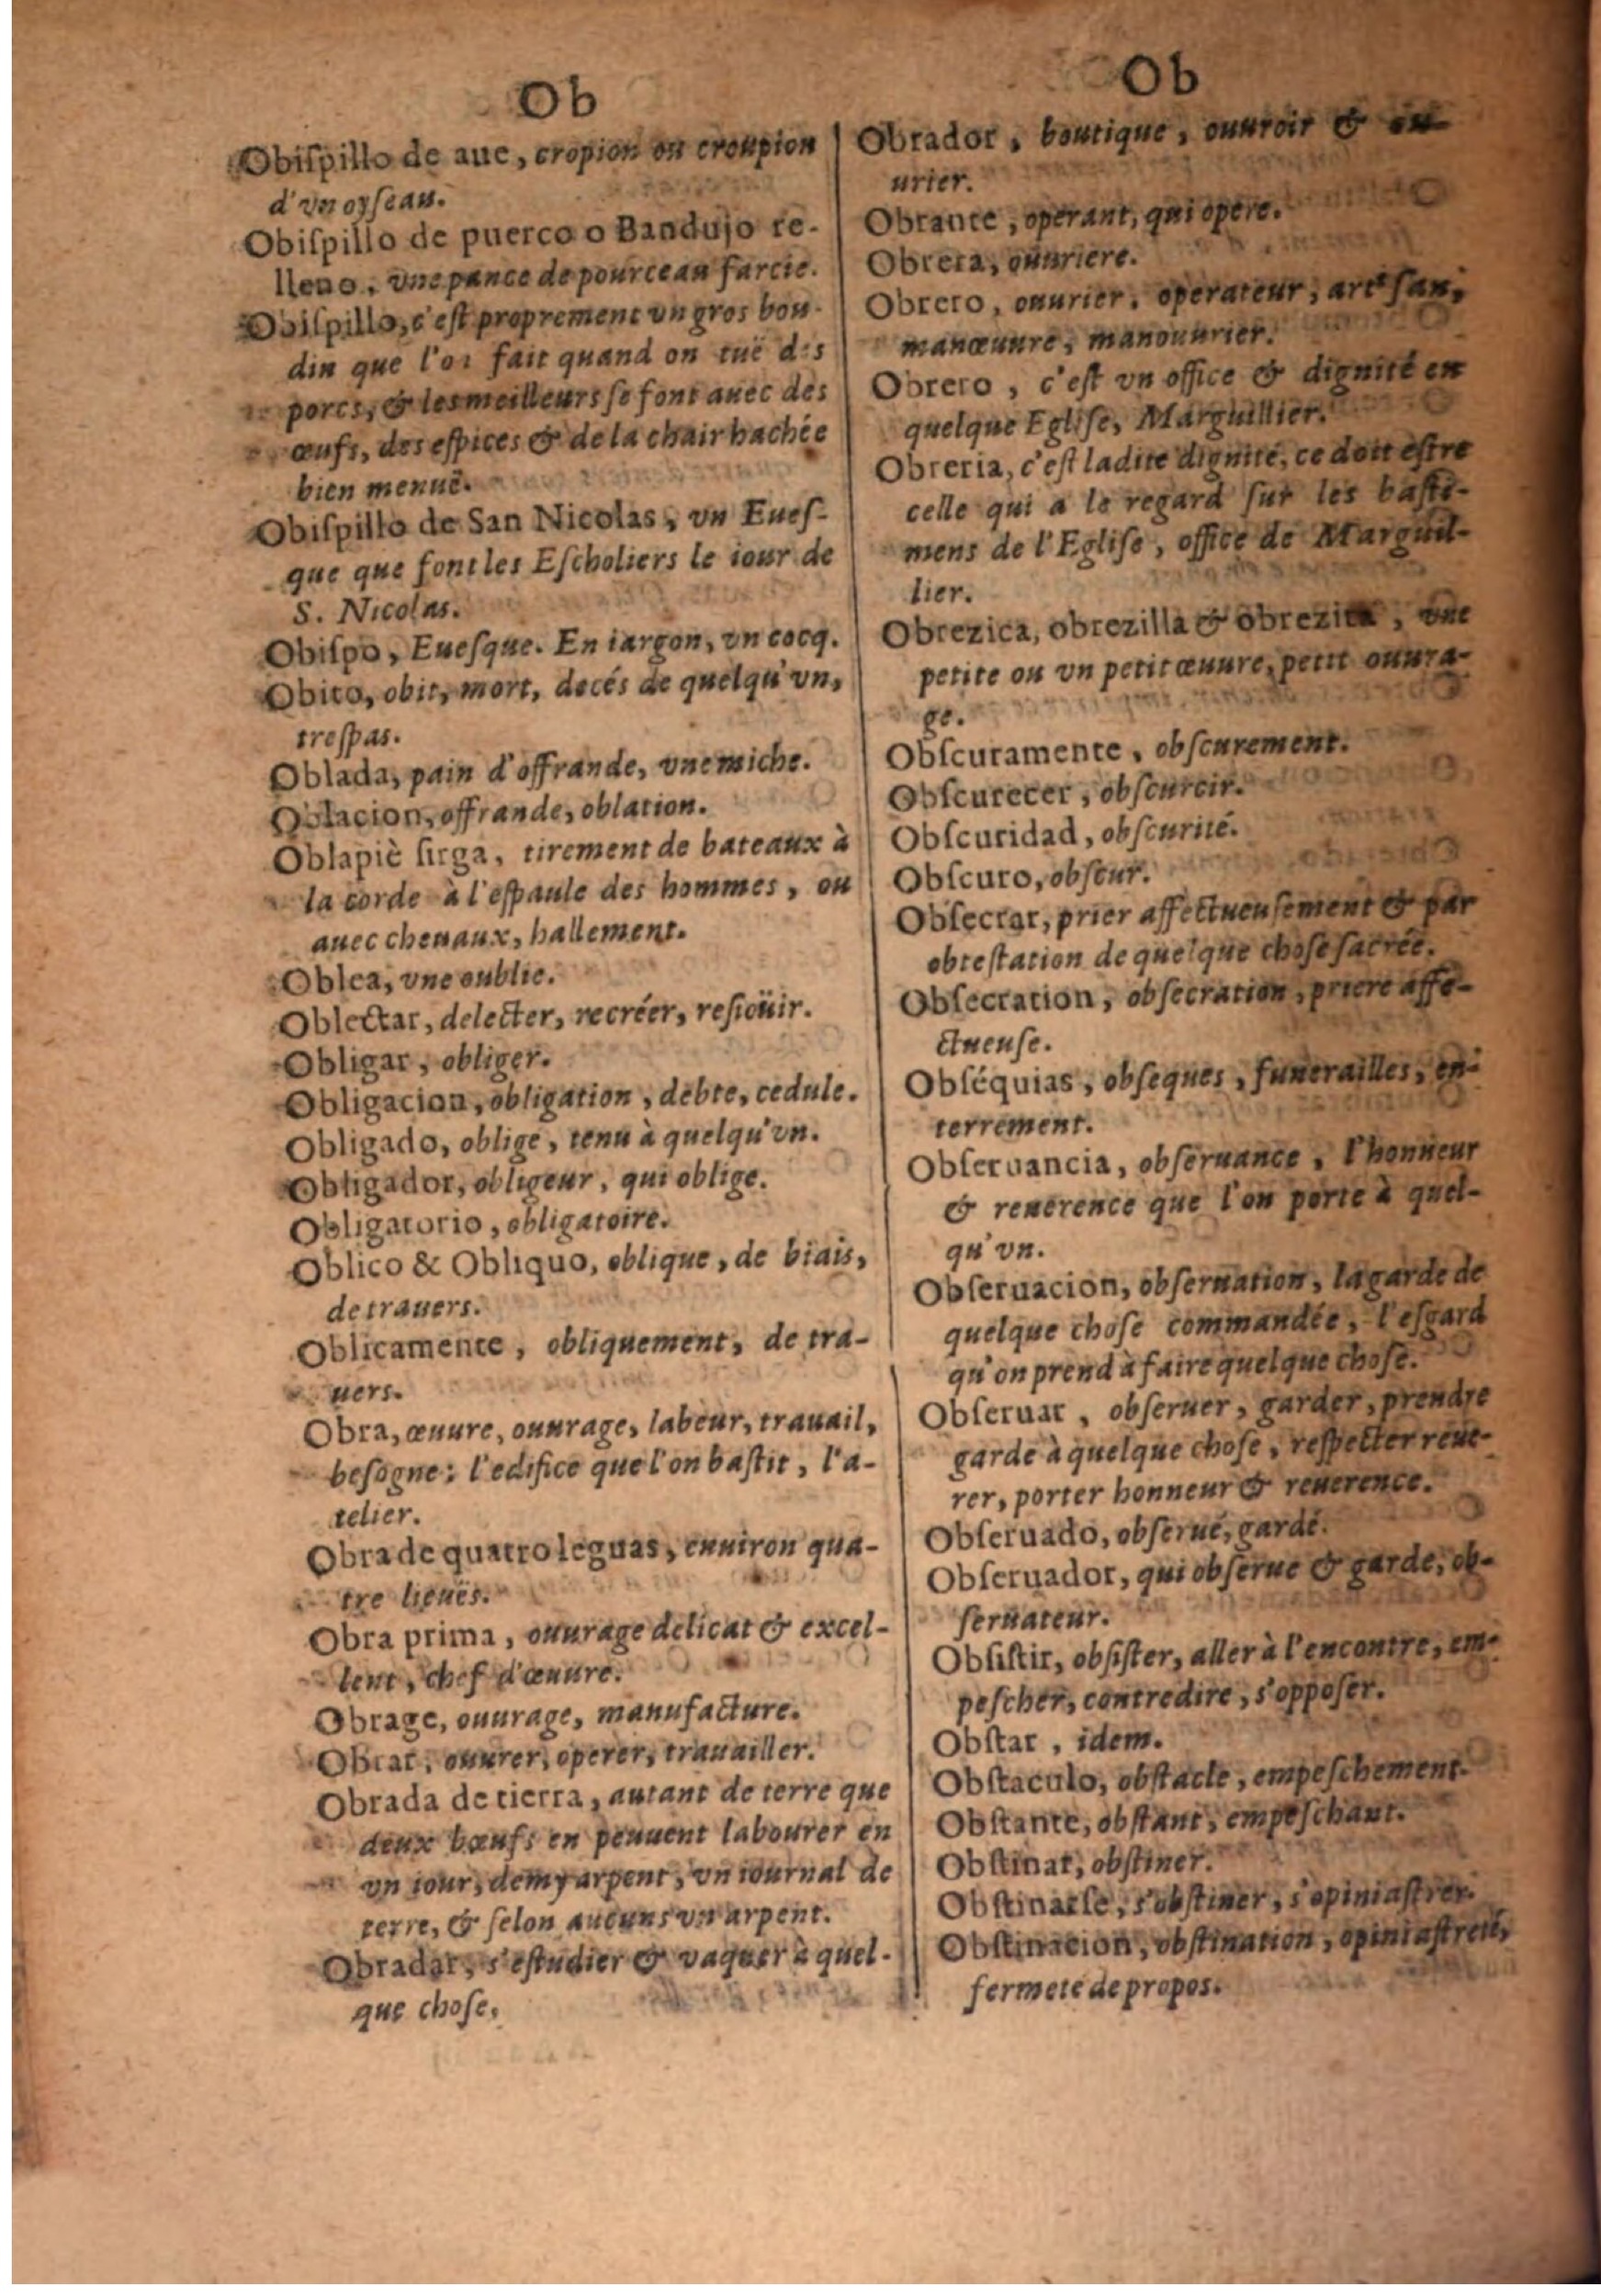 Ob
Obiſpillo de aue, cropion ou croupion
d'vn oyſeau.
Obiſpillo de puerco o Bandujo re-
lleno, vne pance de pourceau farcie.
Obiſpillo, c'eſt proprement vn gros bou-
din que l'on fait quand on tuë des
porcs, & les meilleurs ſe font auec des
œufs, des eſpices & de la chair hachée
bien menuë.
Obiſpillo de San Nicolas, vn Eueſ-
que que font les Eſcholiers le iour de
S. Nicolas.
Obiſpo, Eueſque. En iargon, vn cocq.
Obito, obit, mort, decés de quelqu'vn,
treſpas.
Oblada, pain d'offrande, vne miche.
Oblacion, offrande, oblation.
Oblapiè ſirga, tirement de bateaux à
la corde à l'eſpaule des hommes, ou
auec cheuaux, hallement.
Oblea, vne oublie.
Oblectar, delecter, recréer, reſioüir.
Obligar, obliger.
Obligacion, obligation, debte, cedule.
Obligado, obligé, tenu à quelqu'vn.
Obligador, obligeur, qui oblige.
Obligatorio, obligatoire.
Oblico & Obliquo, oblique, de biais,
de trauers.
Oblicamente, obliquement, de tra-
uers.
Obra, œuure, ouurage, labeur, trauail,
beſogne; l'edifice que l'on baſtit, l'a-
telier.
Obra de quatro leguas, enuiron qua-
tre lieuës.
Obra prima, ouurage delicat & excel-
lent, chef d'œuure.
Obrage, ouurage, manufacture.
Obrar, ouurer, operer, trauailler.
Obrada de tierra, autant de terre que
deux bœufs en peuuent labourer en
vn iour, demy arpent, vn iournal de
terre, & ſelon aucuns vn arpent.
Obradar, s'eſtudier & vaquer à quel-
que choſe,
Ob
Obrador, boutique, ouuroir & ou-
urier.
Obrante, operant, qui opere.
Obrera, ouuriere.
Obrero, ouurier, operateur, artiſan,
manœuure, manouurier.
Obrero, c'eſt vn office & dignité en
quelque Egliſe, Marguillier.
Obreria, c'eſt ladite dignité, ce doit eſtre
celle qui a le regard ſur les baſti-
mens de l'Egliſe, office de Marguil-
lier.
Obrezica, obrezilla & obrezita, vne
petite ou vn petit œuure, petit ouura-
ge.
Obſcuramente, obſcurement.
Obſcurecer, obſcurcir.
Obſcuridad, obſcurité.
Obſcuro, obſcur.
Obſecrar, prier affectueuſement & par
obteſtation de quelque choſe ſacrée.
Obſecration, obſecration, priere affe-
ctueuſe.
Obſéquias, obſeques, funerailles, en-
terrement.
Obſeruancia, obſeruance, l'honneur
& reuerence que l'on porte à quel-
qu'vn.
Obſeruacion, obſeruation, la garde de
quelque choſe commandée, l'eſgard
qu'on prend à faire quelque choſe.
Obſeruar, obſeruer, garder, prendre
garde à quelque choſe, reſpecter reue-
rer, porter honneur & reuerence.
Obſeruado, obſerué, gardé.
Obſeruador, qui obſerue & garde, ob-
ſeruateur.
Obſiſtir, obſiſter, aller à l'encontre, em-
peſcher, contredire, s'oppoſer.
Obſtar, idem.
Obſtaculo, obſtacle, empeſchement.
Obſtante, obſtant, empeſchant.
Obſtinar, obſtiner.
Obſtinarſe, s'obſtiner, s'opiniaſtrer.
Obſtinacion, obſtination, opiniaſtreté,
fermeté de propos.